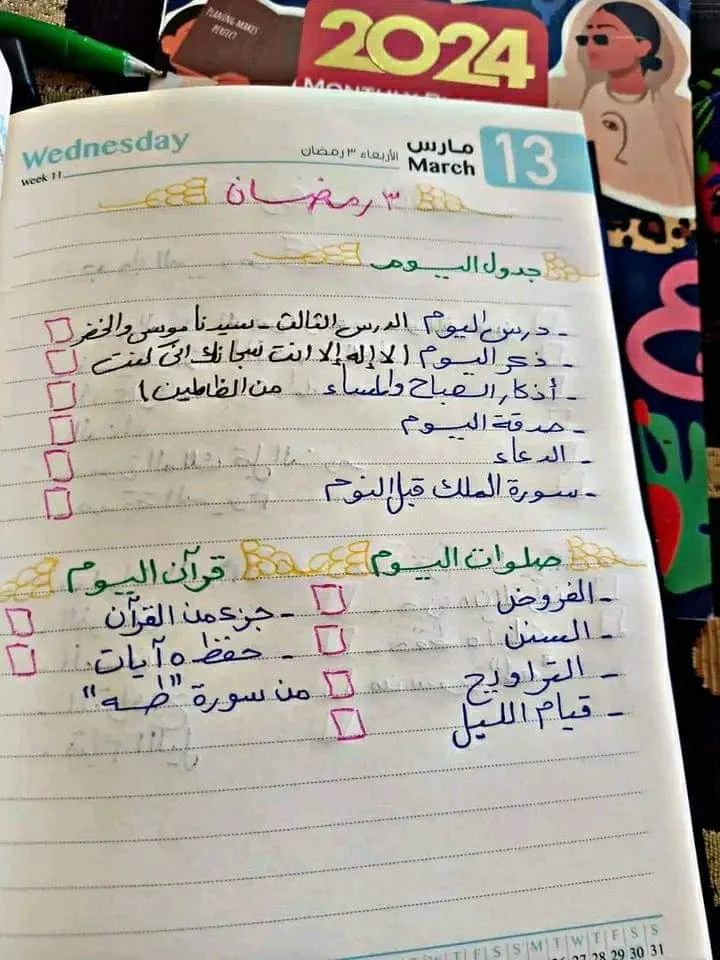 PLANING MAKES
PERFECT
2024
Wednesday
الأربعاء ٣ رمضان
مارس
March
13
Week 11
٣ رمضان
جدول اليوم
- درس اليوم الدرس الثالث - سيدنا موسى والخضر
- ذكر اليوم (لا إله إلا انت سبحانك انى كنت
- أذكار الصباح والمساء من الظالمين)
- صدقة اليوم
- الدعاء
- سورة الملك قبل النوم
صلوات اليوم
- الفروض
- السنن
- التراويح
- قيام الليل
قرآن اليوم
- جزء من القرآن
- حفظ ٥ آيات
من سورة "طه"
T W T F S S M T W T F S S
27 28 29 30 31